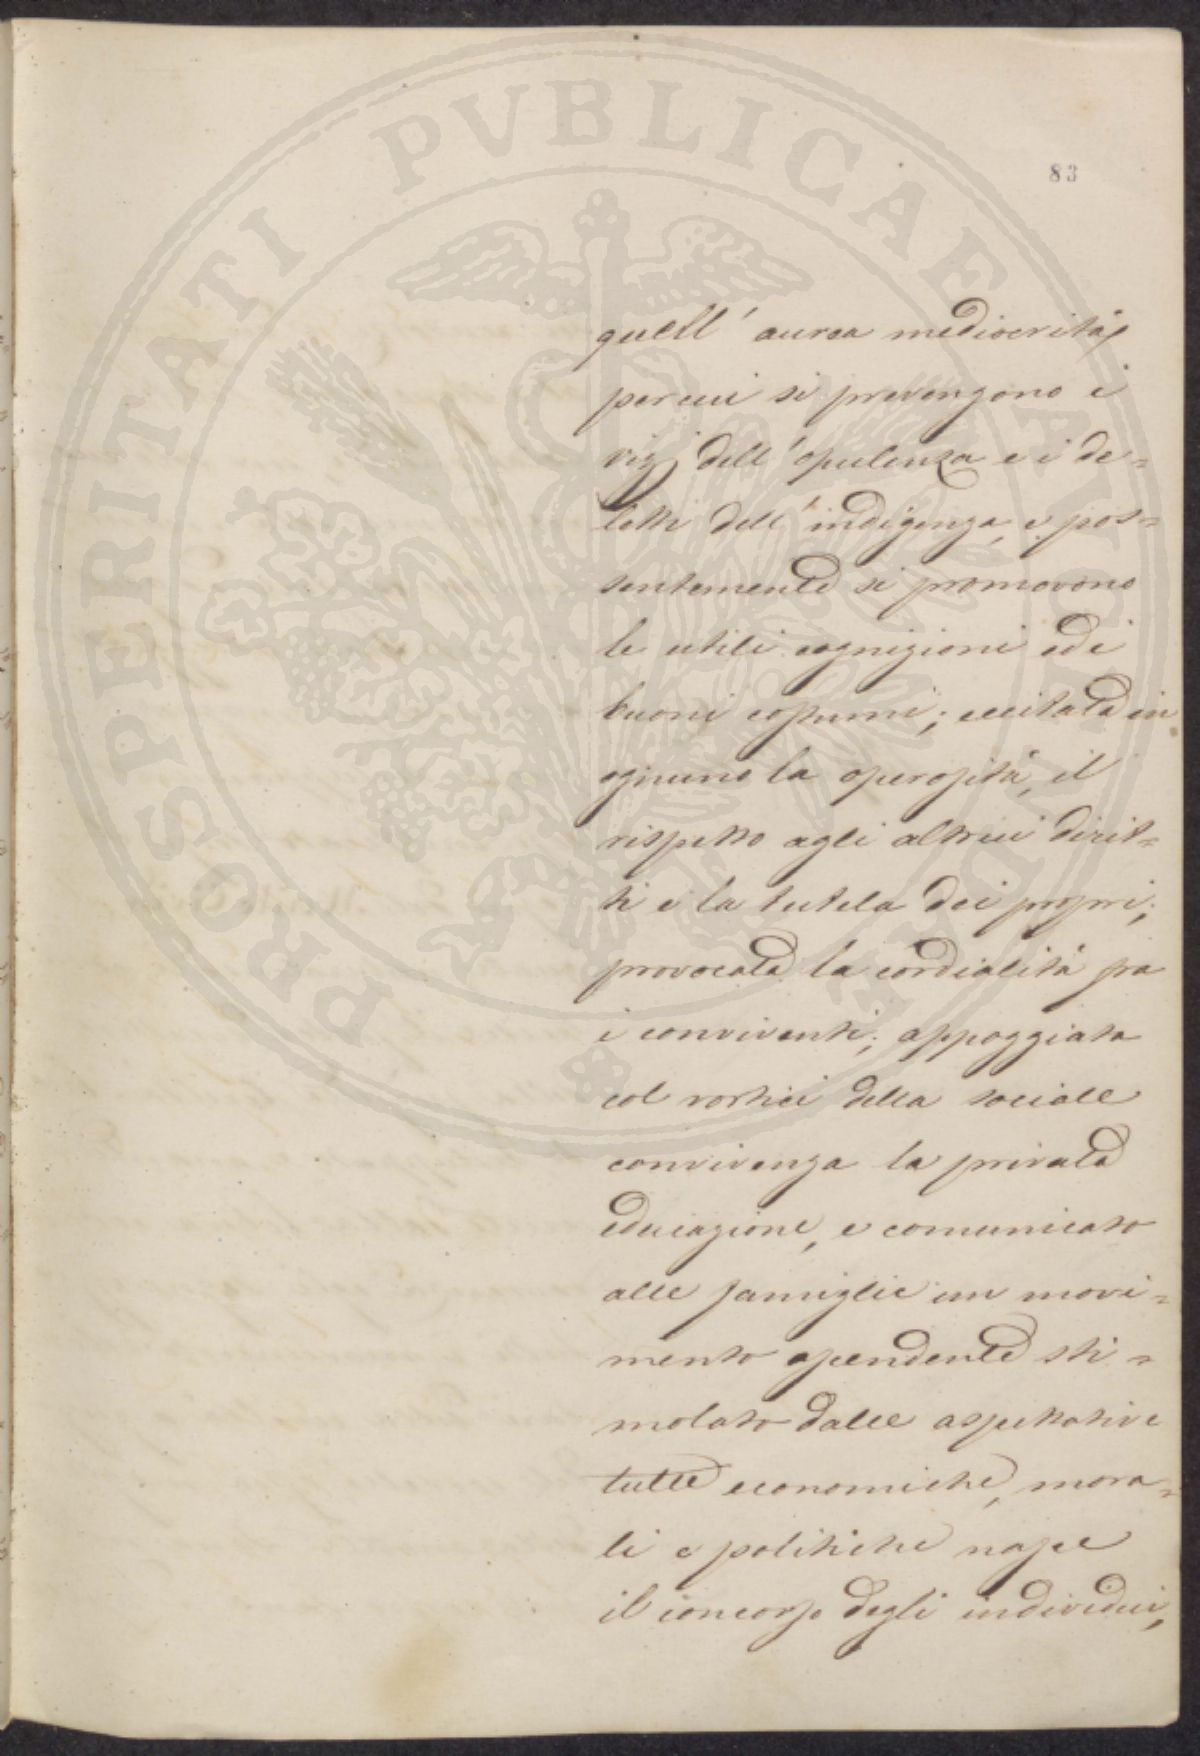 83
quell' aurea mediocrità,
per cui si prevengono i
vizj dell' opulenza e i de=
litti dell' indigenza, e pos=
sentemente si promovono
le utili cognizioni ed i
buoni costumi; eccitata in
ognuno la operosità, il
rispetto agli altrui dirit=
ti e la tutela dei propri;
provocata la cordialità fra
i conviventi; appoggiata
col vortici della sociale
convivenza la privata
educazione, e comunicato
alle famiglie un movi=
mento ascendente sti=
molato dalle aspettative
tutte economiche, mora=
li e politiche nasce
il concorso degli individui,
PROSPERITATI PVBLICAE AVGENDAE